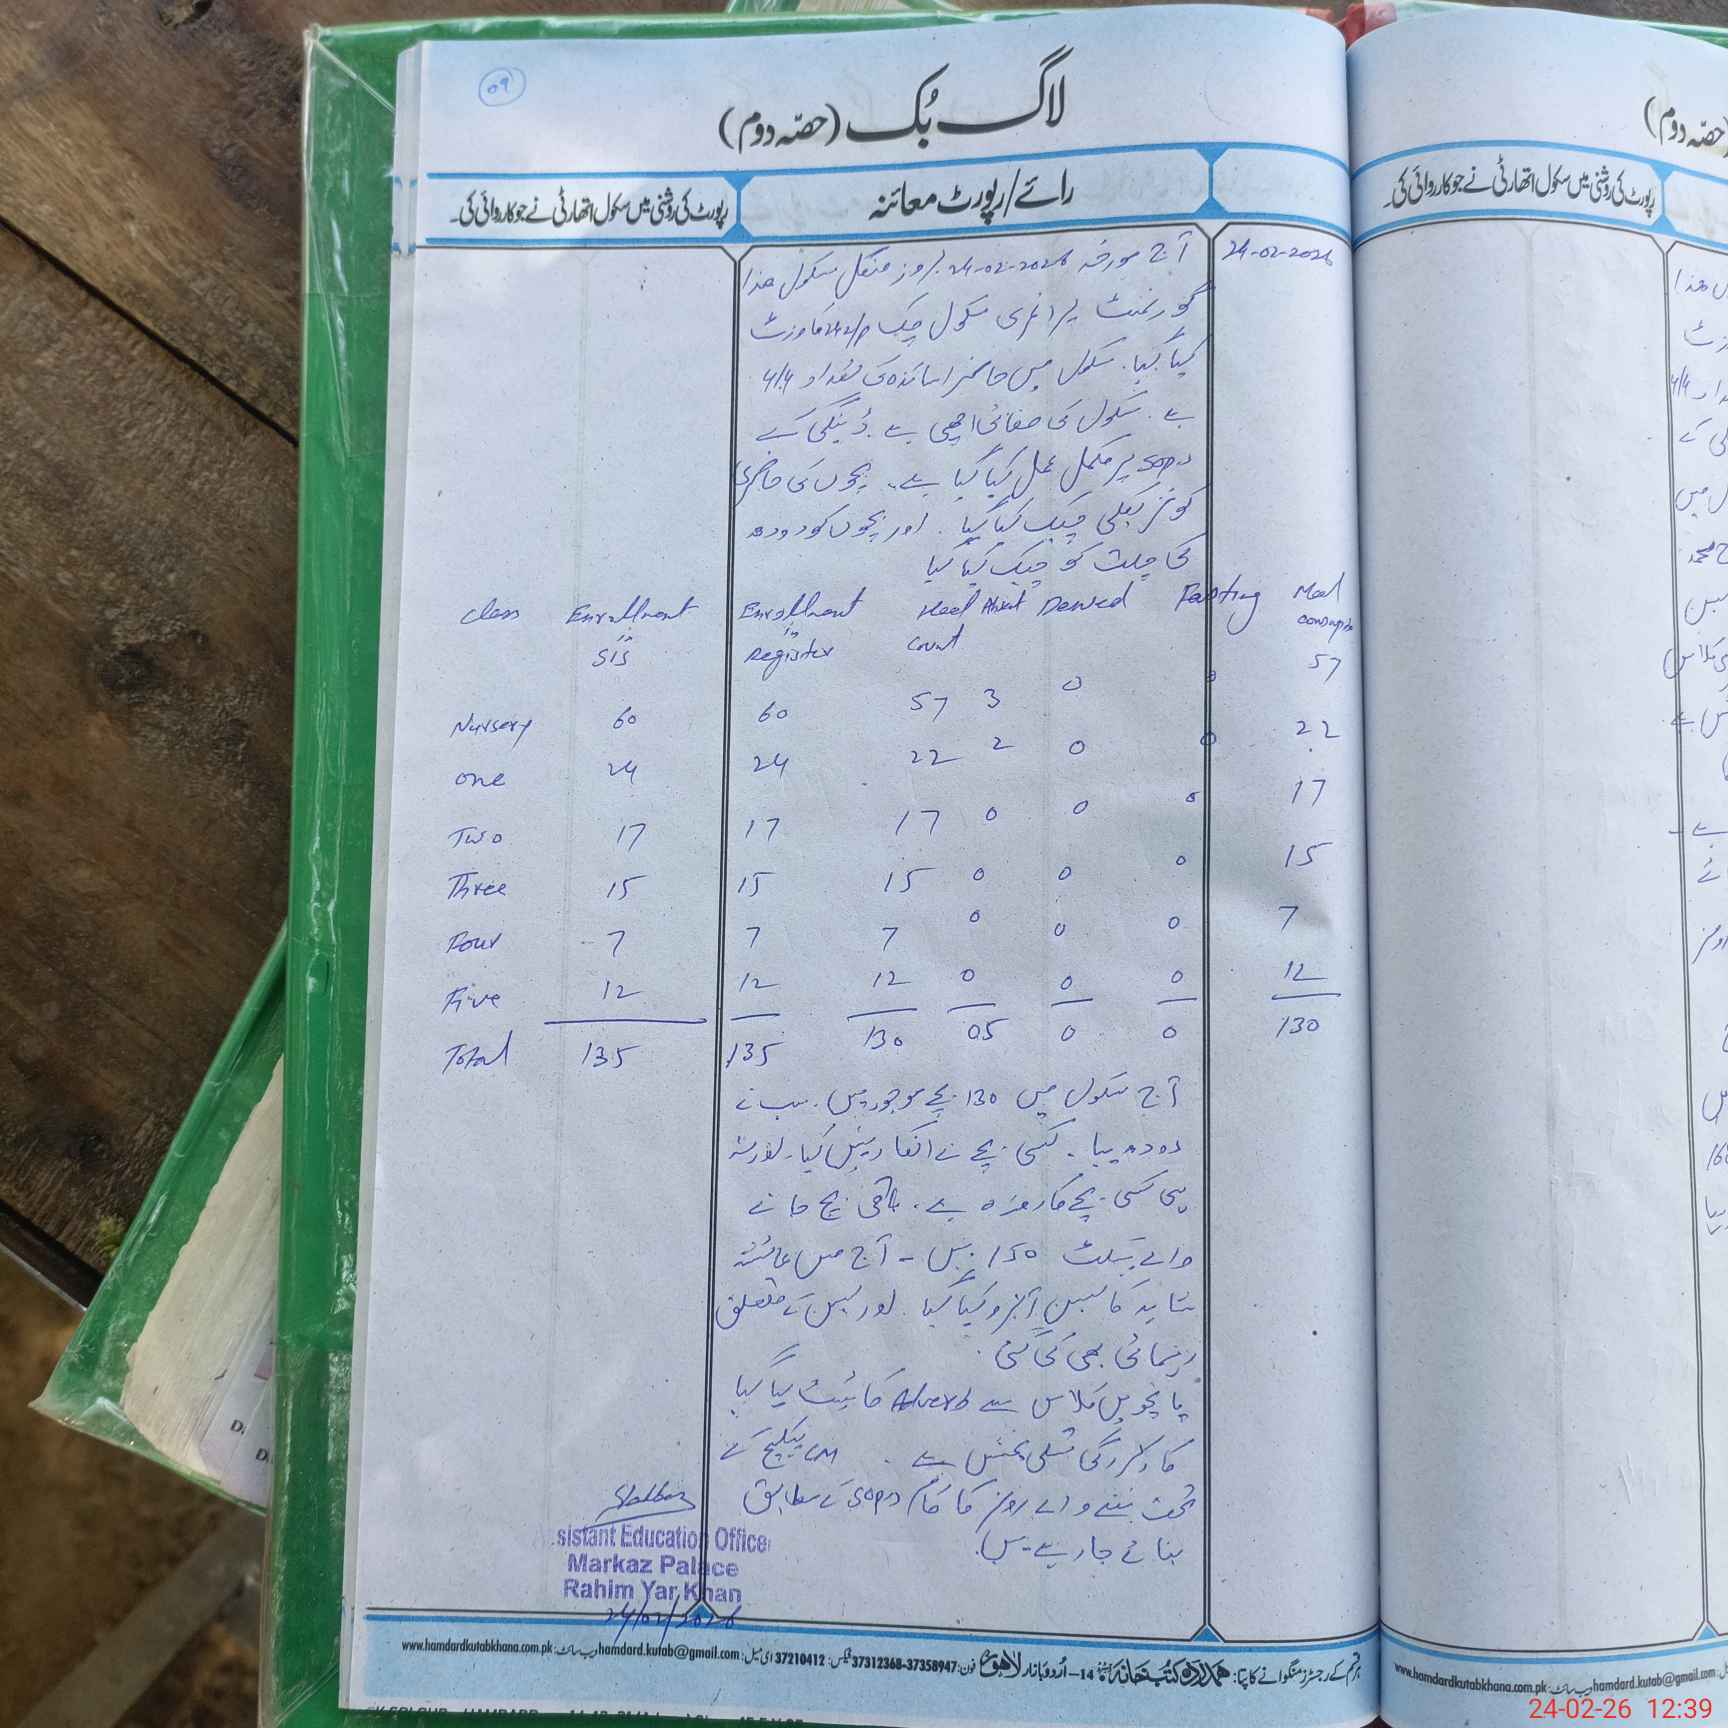 09
لاگ بُک (حصّہ دوم)
رائے/رپورٹ معائنہ
رپورٹ کی روشنی میں سکول اتھارٹی نے جو کارروائی کی۔
24-02-2026
آج مورخہ 24-02-2026 بروز منگل سکول ھذا
گورنمنٹ پرائمری سکول چک کا وزٹ
کیا گیا۔ سکول میں حاضر اساتذہ کی تعداد 4/4
ہے۔ سکول کی صفائی اچھی ہے۔ ڈینگی کے
SOPs پر مکمل عمل کیا گیا ہے۔ بچوں کی حاضری
چیک کیا گیا۔ اور بچوں کو دودھ
کی کو چیک کیا گیا
Class Enrollment in SIS Enrollment in Register Head Count Absent Denied Fasting Meal
Nursery 60 60 57 3 0 0 57
one 24 24 22 2 0 0 22
Two 17 17 17 0 0 0 17
Three 15 15 15 0 0 0 15
Four 7 7 7 0 0 0 7
Five 12 12 12 0 0 0 12
Total 135 135 130 05 0 0 130
آج سکول میں 130 بچے موجود ہیں۔ سب نے
دودھ پیا۔ کسی بچے نے انکار نہیں کیا۔ اور نہ
ہی کسی بچے کا روزہ ہے۔ باقی بچ جانے
والے پیکٹ 150 ہیں۔ آج مس عائشہ
کا لیسن آبزرو کیا گیا۔ اور لیسن کے متعلق
رہنمائی بھی کی گئی۔
پانچویں کلاس سے Adverb کا ٹیسٹ لیا گیا
کارکردگی تسلی بخش ہے۔ CM پیکیج کے
تحت بننے والے رومز کا کام SOPs کے مطابق
بنائے جا رہے ہیں۔
sistant Education Officer
Markaz Palace
Rahim Yar Khan
24/02/2026
ہر قسم کے رجسٹرز منگوانے کا پتا: ہمدرد کتب خانہ 14-اُردو بازار لاہور فون: 37358947-37312368 فیکس: 37210412 ای میل: hamdard.kutab@gmail.com ویب سائٹ: www.hamdardkutabkhana.com.pk
(حصّہ دوم)
رپورٹ کی روشنی میں سکول اتھارٹی نے جو کارروائی کی۔
hamdard.kutab@gmail.com ویب سائٹ: www.hamdardkutabkhana.com.pk
24-02-26 12:39